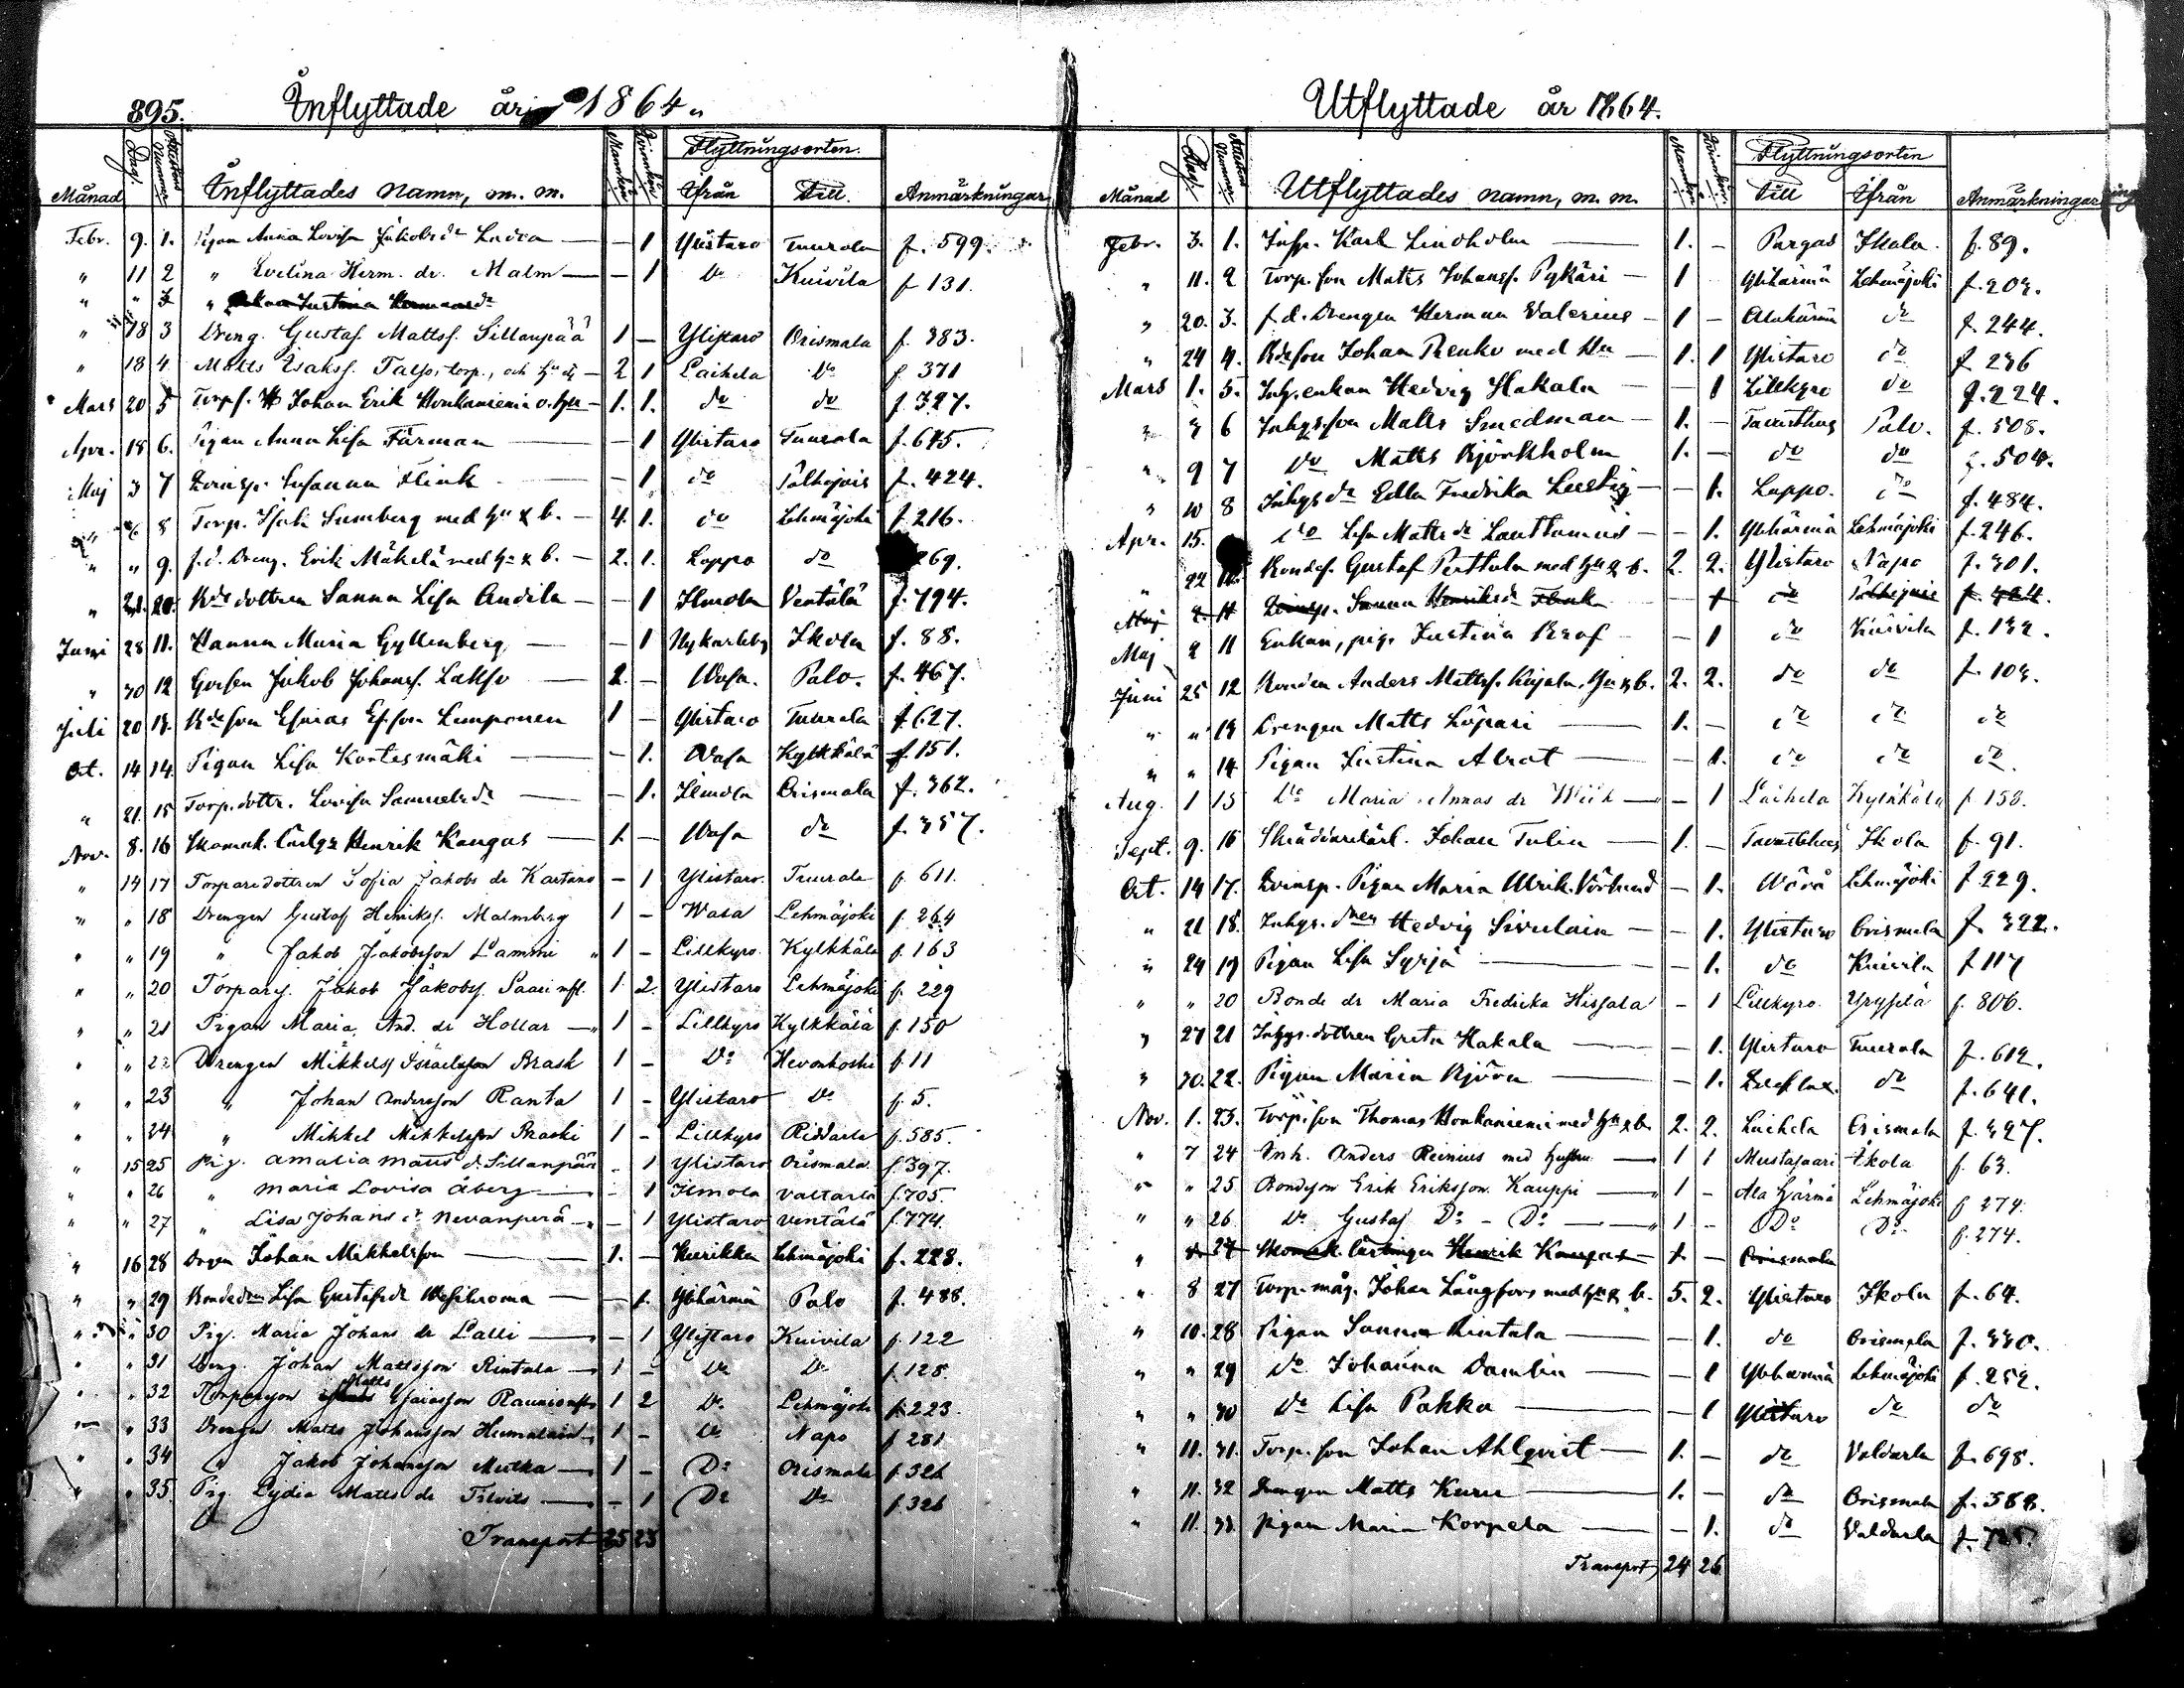 895. Inflyttade år 1864.
Månad Dag. Attestens Nummer Inflyttades namn, m. m. Mankön Qvinkön Flyttningsorten. Ifrån Till. Anmärkningar
Febr. 9. 1. Pigan Anna Lovisa Jakobsdr — — 1 Ylistaro Tuurala f. 599.
" 11 2 " Evelina Herm. dr. Malm — — 1 Do Kuivila f 131.
" " 3 " Justina
" 18 3 Dreng. Gustaf Mattss. Sillanpää 1 — Ylistaro Orismala f. 383.
" 18 4. Matts Isakss. Talso, torp., och hu 2 1 Laihela Do f 371
Mars 20 5 Torps. Johan Erik Honkaniemi o. hu — 1. 1. do do f. 327.
Apr. 18 6. Pigan Anna Lisa Färman — — 1 Ylistaro Tuurala f. 645.
Maj 3 7 Qvinsp. Susanna Flink — 1 do Palhojais f. 424.
" 8 Torp. Isak Sumberg med hu & b. — 4. 1. do Lehmäjoki f. 216.
" " 9. f.d. Dreng. Erik Mäkelä med hu & b. — 2. 1. Lappo do 269.
" 21. 10. Bdedottren Sanna Lisa Andila — — 1 Ilmola Ventälä f. 794.
Juni 28 11. Hanna Maria Gyllenberg — — 1 Nykarleby Ikola f. 88.
" 30 12 Jakob Johanss. Lakso — 2. — Wasa. Palo. f. 467.
Juli 20 13. Bdeson Esaias Es.son Lumponen 1 — Ylistaro Tuurala f. 627.
Oct. 14 14. Pigan Lisa Kortesmäki — — 1. Wasa Kylkkälä f. 151.
" 21. 15 Torp.dottr. Lovisa Samuelsdr — — 1. Ilmola Orismala f. 362.
Nov. 8. 16 Skomak. Lärlgn Henrik Kangas — 1. — Wasa do f. 357.
" 14 17 Torparedottren Sofia Jakobs dr Kartano — 1 Ylistaro. Tuurala f. 611.
" " 18 Drengen Gustaf Henrikss. Malmberg 1 — Wasa Lehmäjoki f. 264
" " 19 " Jakob Jakobsson Lammi " 1 — Lillkyro. Kylkkälä f. 163
" " 20 Torpars. Jakob Jakobs. Saari mfl. 1 2. Ylistaro Lehmäjoki f. 229
" " 21 Pigan Maria And. dr Hollar — 1 — Lillkyro Kylkkälä f. 150
" " 22 Drengen Mikkels Israelsson Brask 1 — Do Hevonkoski f. 11
" " 23 " Johan Andersson Ranta 1 — Ylistaro Do f. 5.
" " 24 " Mikkel Mikkelsson Braski 1 — Lillkyro Riddarla f. 585.
" 15 25 Pig. Amalia Matts d. Sillanpää — 1 Ylistaro Orismala f. 397.
" " 26 " Maria Lovisa Åberg — — 1 Ilmola Valtarla f. 705.
" " 27 " Lisa Johans dr Nevanperä — — 1 Ylistaro Ventälä f. 774.
" 16 28 Dngn Johan Mikkelsson — 1. — Kuirikka Lehmäjoki f. 228.
" " 29 Bondedn Lisa Gustafsdr — — 1. Ylihärmä Palo f. 488.
" " 30 Pig. Maria Johans dr Lalli — — 1 Ylistaro Kuivila f. 122
" " 31 Dreng. Johan Mattsson Rintala — 1 — Do Do f. 128.
" " 32 Torparson Matts Esaiasson Raunio mfl 1 2 Do Lehmäjoki f. 223.
" " 33 Drengen Matts Johansson — 1 — Do Napo f 281
" " 34 " Jakob Johansson Mutka — 1 — Do Orismala f. 326
" " 35. Pig. Lydia Matts dr — — 1 Do Do f. 326
Transport 25 23
Utflyttade år 1864.
Månad Dag. Attestens Nummer Utflyttades namn, m. m. Mankön Qvinkön Flyttningsorten Till Ifrån Anmärkningar
Febr. 3. 1. Insp. Karl Lindholm — 1. — Pargas Ikola. f. 89.
" 11. 2 Torp.son Matts Johanss. Pykäri — 1 Ylihärmä Lehmäjoki f. 203.
" 20. 3. f.d. Drengen Herman Valerius — 1 — Alahärmä do f. 244.
" 24 4. Bdeson Johan Renko med Hu — 1. 1 Ylistaro do f 236
Mars 1. 5. Inh.enkan Hedvig Hakala — — 1 Lillkyro do f. 224.
" 3 6 Inhys.son Matts Smedman — 1. — Tavasthus Palo. f. 508.
" 9 7 Do Matts Björkholm 1. — do do f. 504.
" 10 8 Inhys dr Edla Fredrika Lustig — — 1. Lappo. do f. 484.
Apr. 15. do Lisa Matts dr Lauttamus — — 1. Ylihärmä Lehmäjoki f. 246.
" 22 Bondes. Gustaf Perttula med hu & b. 2. 2. Ylistaro Napo f. 301.
Maj 2. 11 Qvinsp. Sanna Henriksdr Flink — 1 do Palhojais f. 424.
Maj 2 11 Enkan, pig. Justina Kraf — — 1 do Kuivila f. 132.
Juni 25 12 Bonden Anders Mattss. Kujala, hu & b. 2. 2. do do f. 103.
" " 13 Drengen Matts Löpari — 1. — do do do
" " 14 Pigan Justina Alrot — — 1. do do do
Aug. 1 15 Do Maria Annas dr Wiik — — 1 Laihela Kylkkälä f. 158.
Sept. 9. 16 Skräddarelärl. Johan Tulin — 1. — Tavastehus Ikola f. 91.
Oct. 14 17. Qvinsp. Pigan Maria Ulrik. Vörlund — 1. Wörå Lehmäjoki f 229.
" 21 18. Inhys. dren Hedvig Sivulain — — 1. Ylistaro Orismala f. 322.
" 24 19 Pigan Lisa Syrjä — — 1. do Kuivila f 117
" " 20 Bonde dr Maria Fredrika Hissala — 1 Lillkyro. f. 806.
" 27 21 Inhys.dottren Greta Hakala — — 1. Ylistaro Tuurala f. 612.
" 30. 22. Pigan Maria Björn — — 1. do f. 641.
Nov. 1. 23. Torp.son Thomas Honkaniemi med hu & b. 2. 2. Laihela Orismala f. 327.
" 7 24 Inh. Anders Reinius med hustru — 1 1 Mustasaari Ikola f. 63.
" " 25 Bondeson Erik Eriksson Kauppi — 1 — Ala Härmä Lehmäjoki f 274.
" " 26 Do Gustaf Do — Do — 1 — Do Do f. 274.
" 8 27 Skomak. lärlingen Henrik Kangas — 1 — Orismala
" 8 27 Torp. måg. Johan Långfors med hu & b. 5. 2. Ylistaro Ikola f. 64.
" 10. 28 Pigan Sanna Rintala — — 1. do Orismala f. 330.
" " 29 Do Johanna Damlin — — 1 Ylihärmä Lehmäjoki f. 252.
" " 30 Do Lisa Pakka — — 1 Ylistaro do do
" 11. 31. Torp.son Johan Ahlqvist — 1. — do Valdarla f. 698.
" 11. 32 Drengen Matts Kuru — 1. — do Orismala f. 368.
" 11. 33 Pigan Maria Korpela — — 1. do Valdarla
Transport 24 26